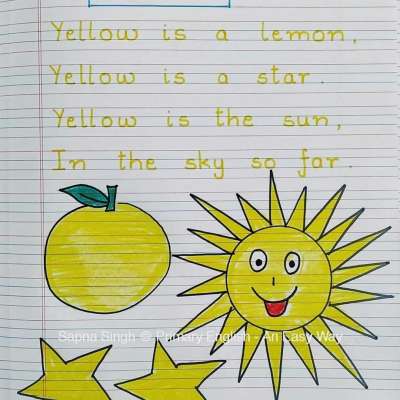 Yellow is a lemon,
Yellow is a star.
Yellow is the sun,
In the sky so far.
Sapna Singh @ Primary English - An Easy Way